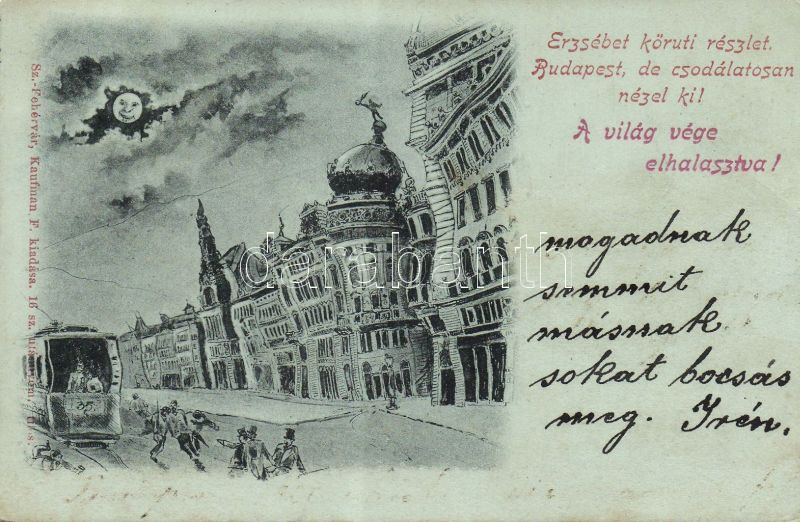 Erzsébet köruti részlet.
Budapest, de csodálatosan
nézel ki!
A világ vége
elhalasztva!
magadnak
semmit
másnak
sokat bocsás
meg. Irén.
Sz.-Fehérvár, Kaufman F. kiadása. 16 sz.
darabanth
35